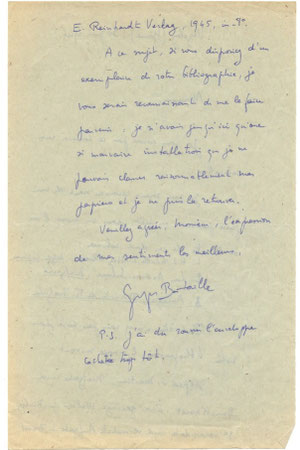 E. Reinhardt Verlag, 1945, in-8°.
A ce sujet, si vous disposiez d'un
exemplaire de votre bibliographie, je
vous serais reconnaissant de me le faire
parvenir, je n'avais jusqu'ici qu'une
si mauvaise installation que je ne
pouvais classer raisonnablement mes
papiers et je ne puis la retrouver.
Veuillez agréer, Monsieur, l'expression
de mes sentiments les meilleurs.
Georges Bataille
P.S. j'ai dû rouvrir l'enveloppe
cachetée trop tôt.